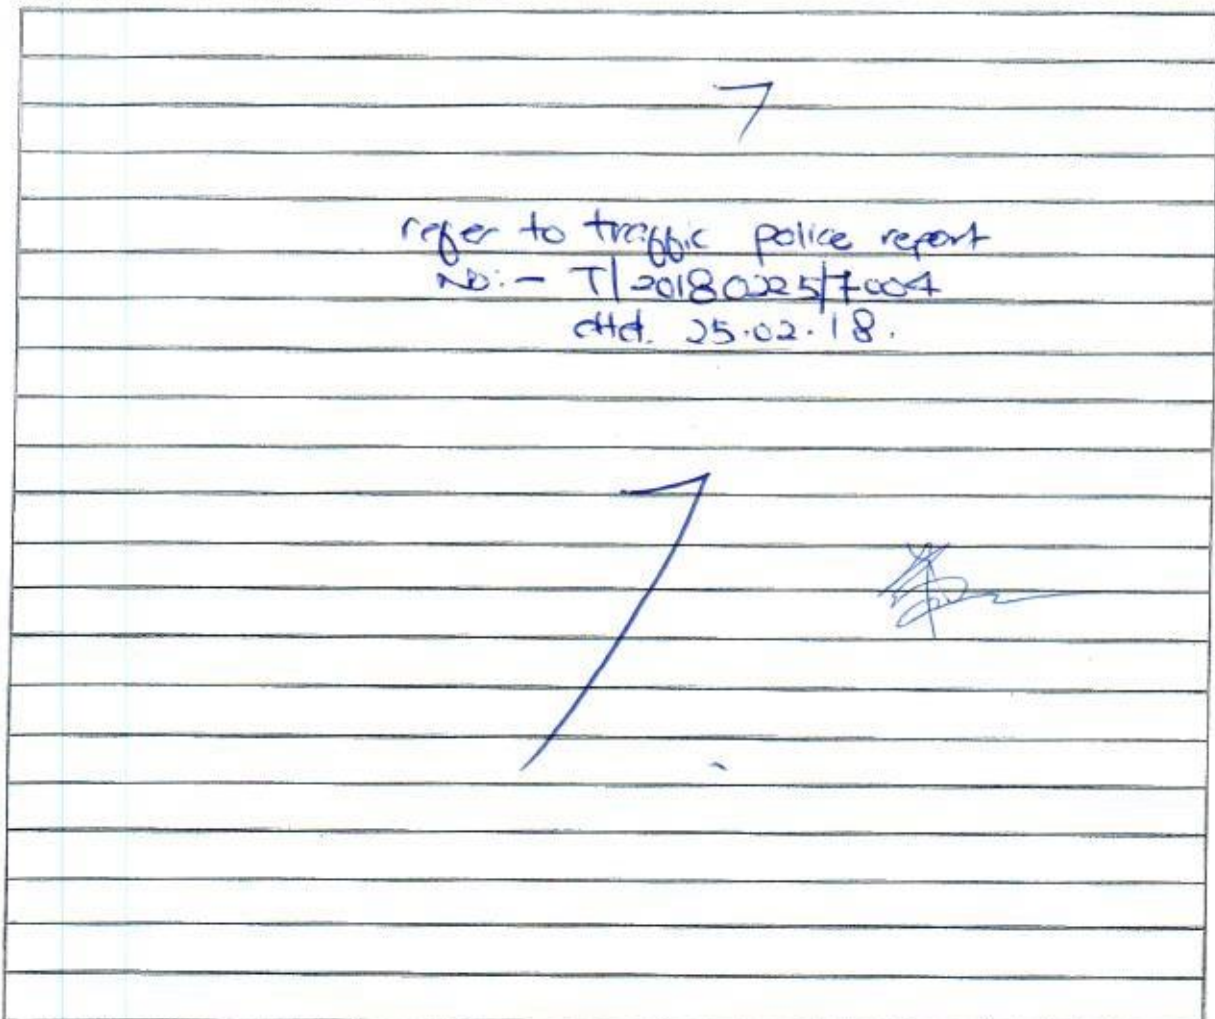 refer to traffic police report
No:- T/20180225/7004
dtd. 25.02.18.